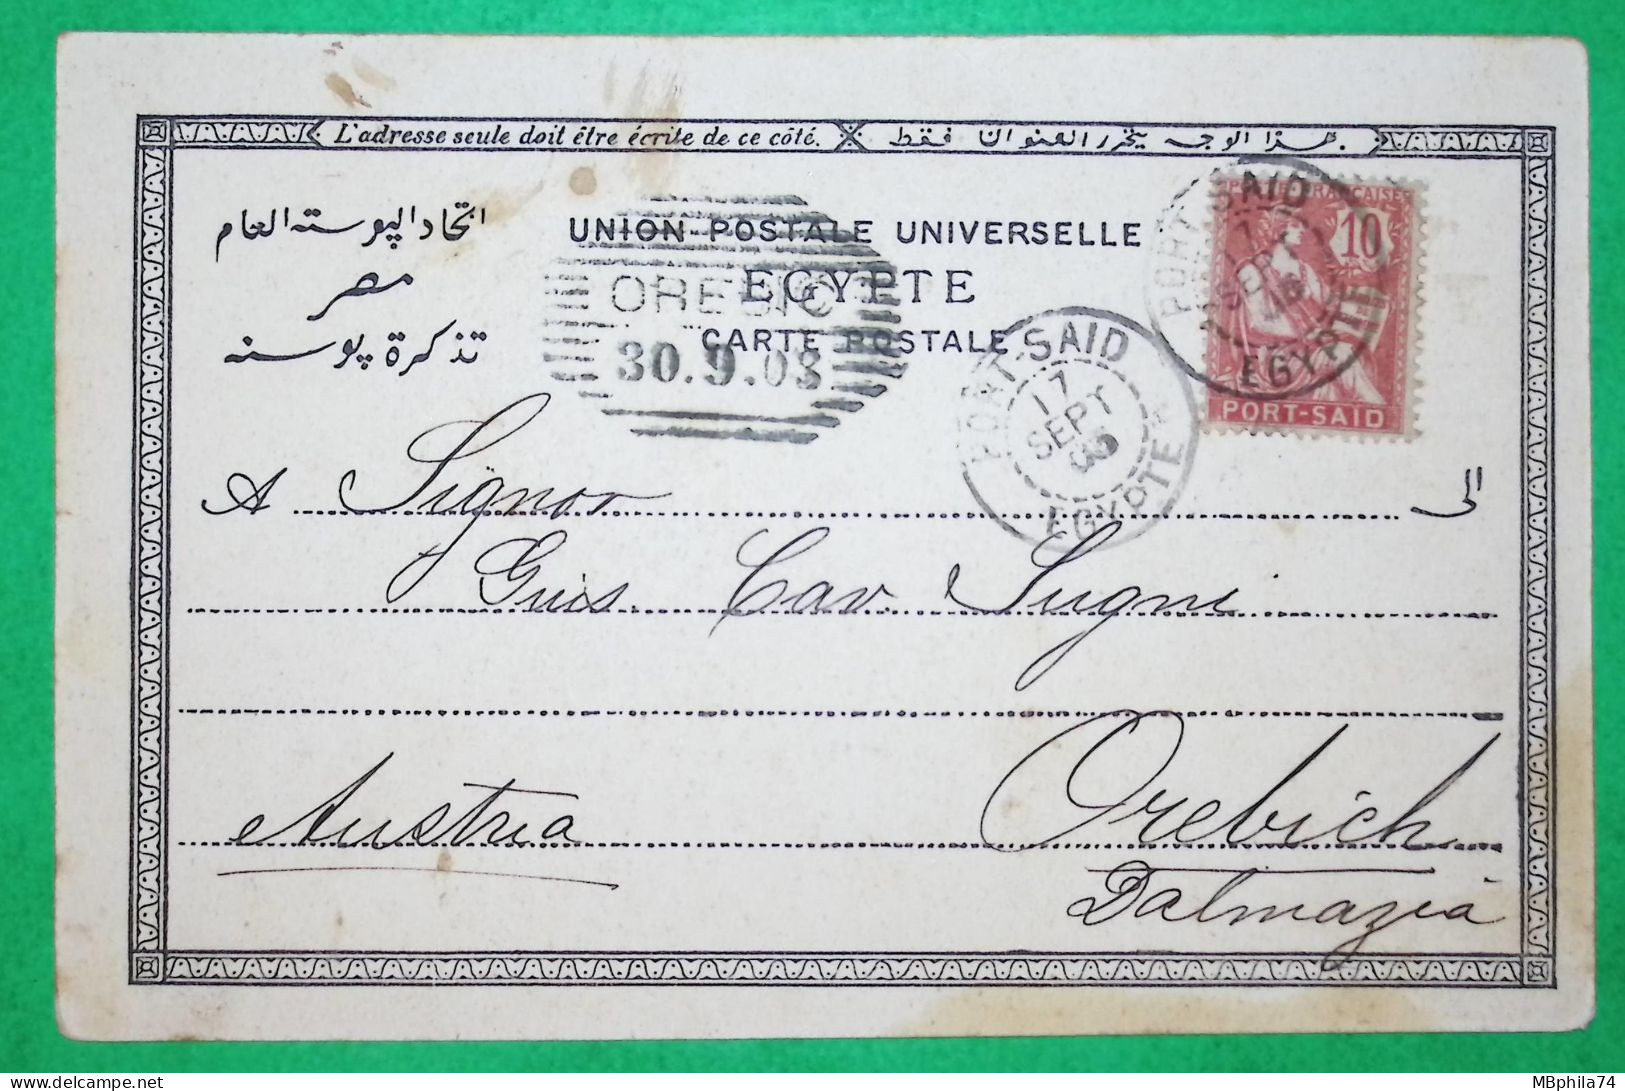 L'adresse seule doit être écrite de ce côté. هذا الوجه يحرر العنوان فقط
اتحاد البوسته العام
مصر
تذكرة بوسته
UNION POSTALE UNIVERSELLE
EGYPTE
CARTE POSTALE
OREBIC
30.9.03
PORT-SAID
17
SEPT
EGYPTE
POSTE FRANÇAISE
10
PORT-SAID
PORT-SAID
SEPT
EGYPTE
A Signor الى
Guis. Cav. Sugni
Austria Orebich
Dalmazia
MBphila74